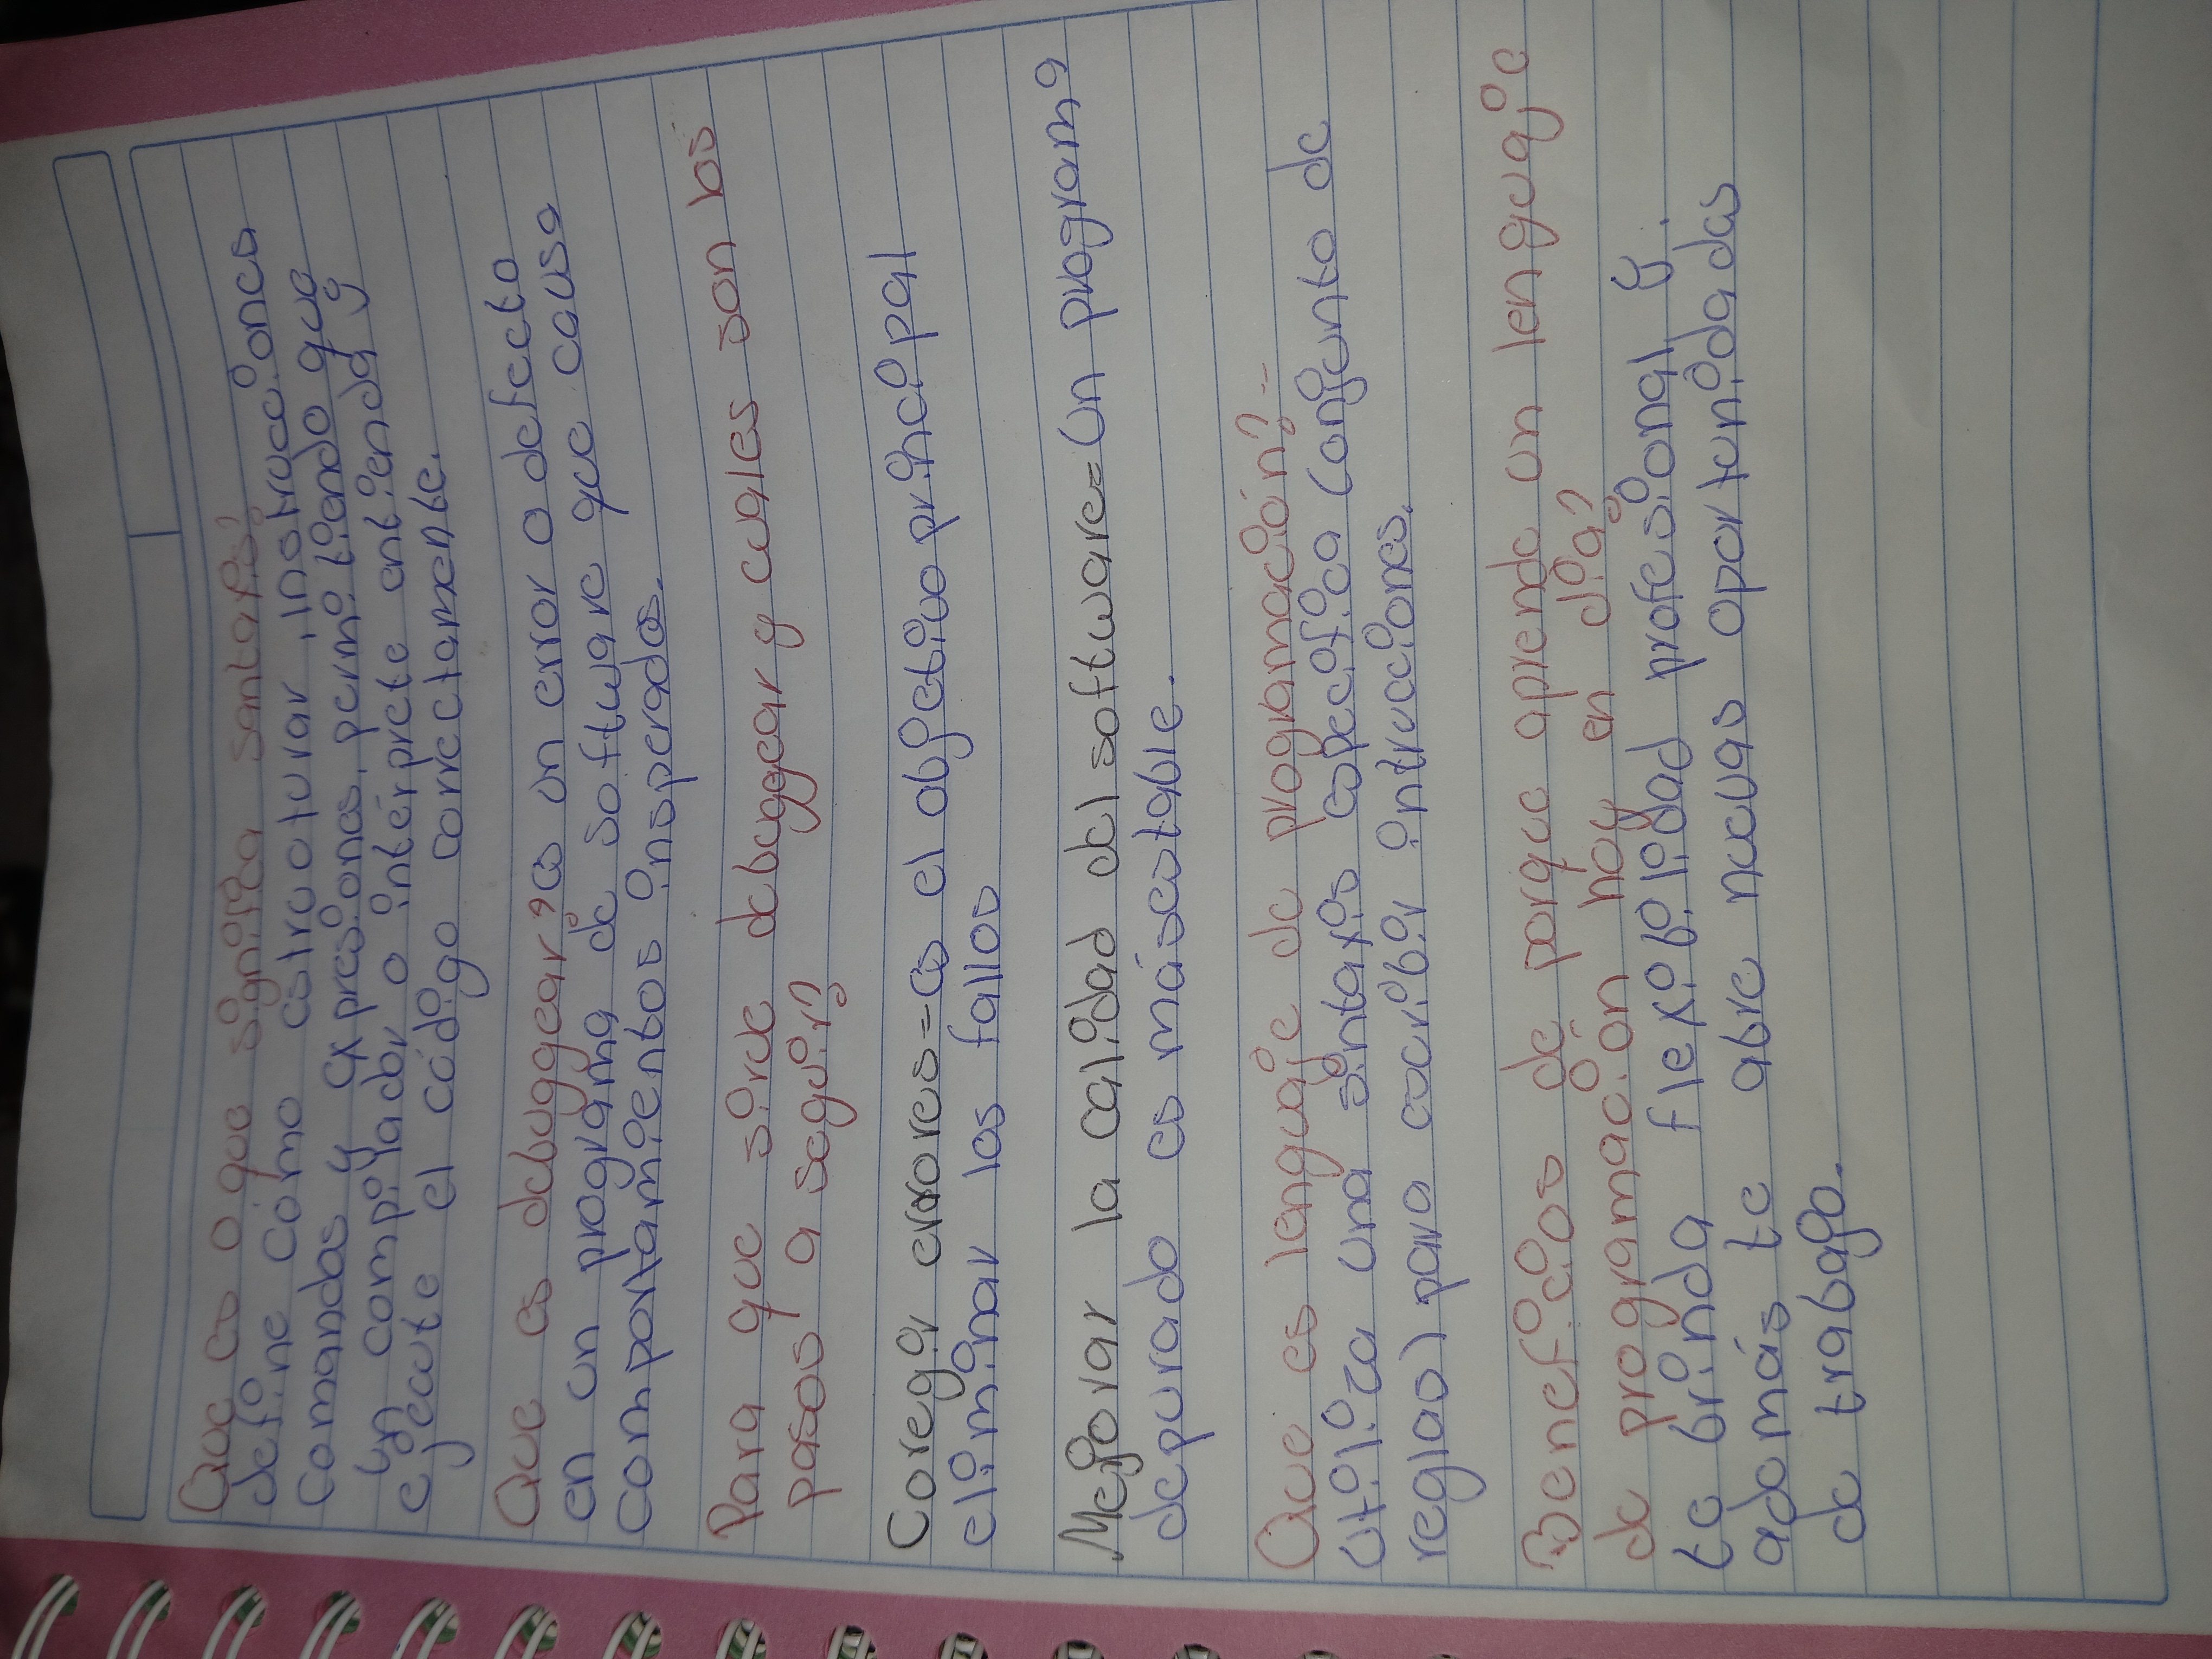 Que es o que significa santaxis?
define cómo estructurar, instrucciones
comandos y expresiones, permitiendo que
un compilador o intérprete entienda y
ejecute el código correctamente.
Que es debuggear? es un error o defecto
en un programa de software que causa
comportamientos insperados.
Para que sirve debuggear y cuales son los
pasos a seguir?
Coregir errores=es el objetivo principal
eliminar los fallos
Mejorar la calidad del software=Un programa
depurado es más estable.
Que es lenguaje de programación?
Utiliza una sintaxis especifica (conjunto de
reglas) para escribir intrucciones.
Beneficios de porque aprende un lenguaje
de programación hoy en día?
Te brinda flexibilidad profesional y.
además te abre nuevas oportunidades
de trabajo.